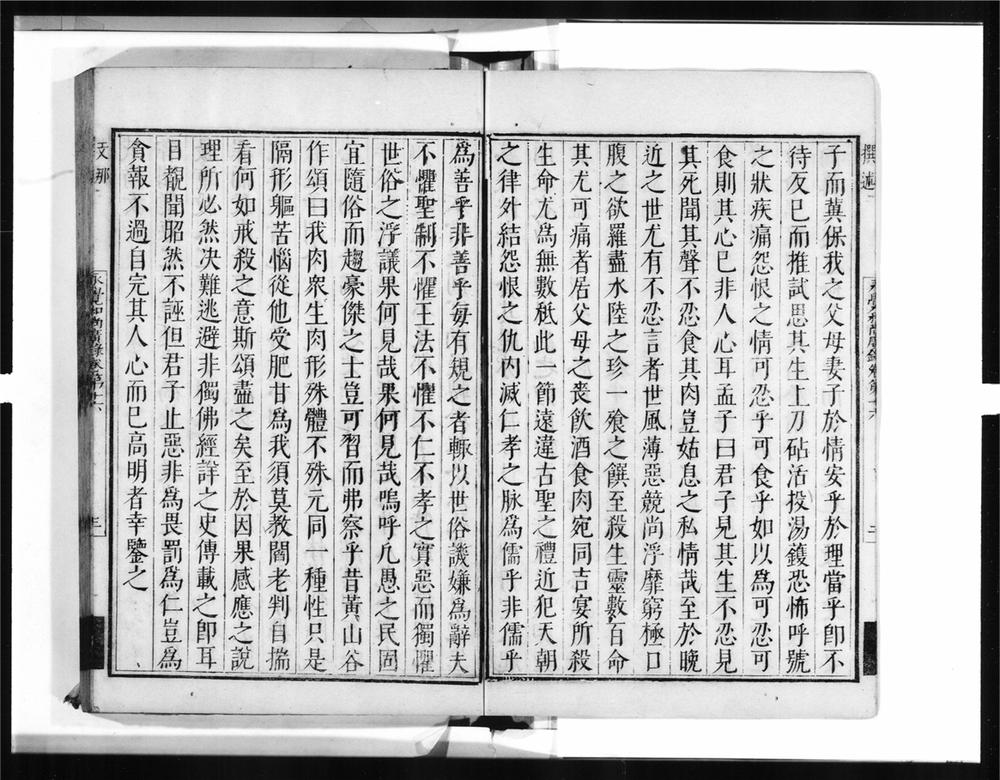 子而冀保我之父母妻子於情安乎於理當乎卽不
待反巳而推試思其生上刀砧活投湯鑊恐怖呼號
之狀疾痛怨恨之情可忍乎可食乎如以為可忍可
食則其心巳非人心耳孟子曰君子見其生不忍見
其死聞其聲不忍食其肉豈姑息之私情哉至於晚
近之世尤有不忍言者世風薄惡競尚浮靡窮極口
腹之欲羅盡水陸之珍一飱之饌至殺生靈數百命
其尤可痛者居父母之喪飲酒食肉宛同吉宴所殺
生命尤為無數秪此一節遠違古聖之禮近犯天朝
之律外結怨恨之仇內滅仁孝之脉為儒乎非儒乎
為善乎非善乎每有規之者輙以世俗譏嫌為辭夫
不懼聖制不懼王法不懼不仁不孝之實惡而獨懼
世俗之浮議果何見哉果何見哉嗚呼凡愚之民固
宜隨俗而趨豪傑之士豈可習而弗察乎昔黃山谷
作頌曰我肉衆生肉形殊體不殊元同一種性只是
隔形軀苦惱從他受肥甘為我須莫教閻老判自揣
看何如戒殺之意斯頌盡之矣至於因果感應之說
理所必然決難逃避非獨佛經詳之史傳載之卽耳
目覩聞昭然不誣但君子止惡非為畏罰為仁豈為
貪報不過自完其人心而巳高明者幸鑒之